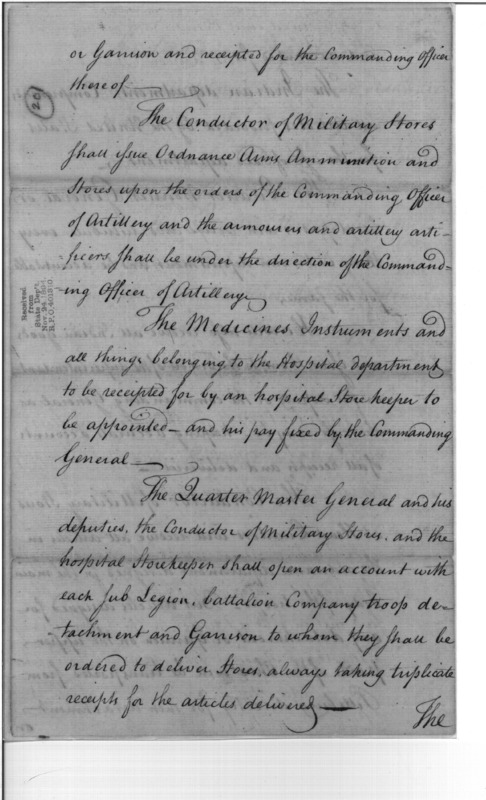 or Garrison and receipted for the Commanding Officer
thereof
20
The Conductor of Military Stores
shall issue Ordnance Arms Ammunition and
Stores upon the orders of the Commanding Officer
of Artillery and the armourers and artillery arti-
-ficers shall be under the direction of the Command-
-ing Officer of Artillery
Received
from
State Dep't.
The Medicines, Instruments and
all things belonging to the Hospital department
to be receipted for by an hospital Store keeper to
be appointed — and his pay fixed by the Commanding
General —
The Quarter Master General and his
deputies, the Conductor of Military Stores, and the
hospital Storekeeper shall open an account with
each Sub Legion, battalion Company troop de-
-tachment and Garrison to whom they shall be
ordered to deliver Stores, always taking triplicate
receipts for the articles delivered —
The